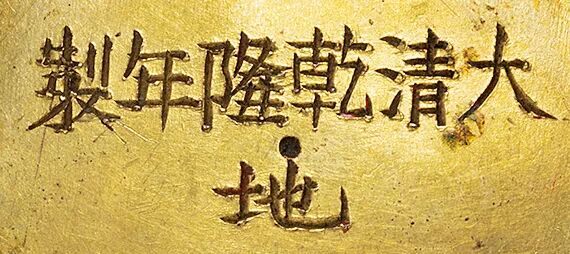 大清乾隆年製
地